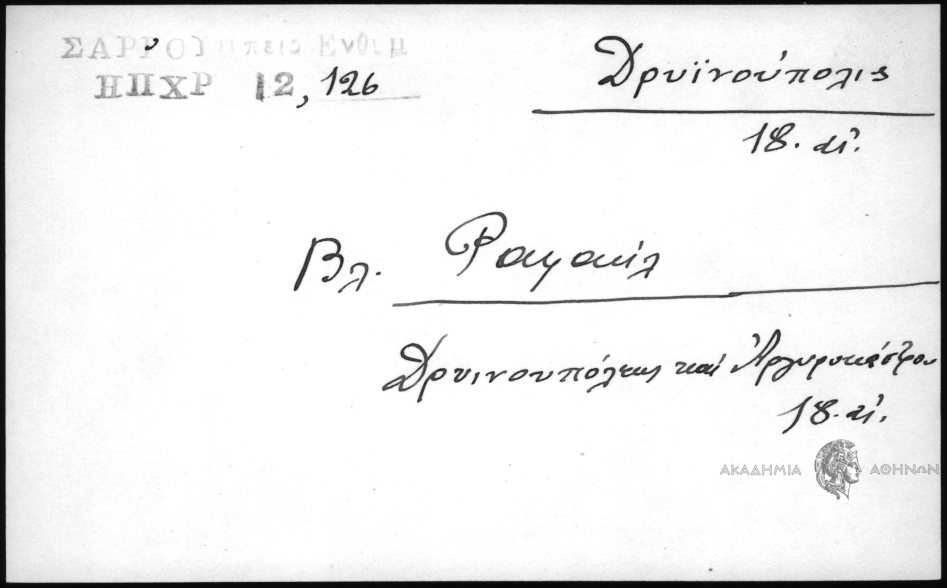 ΣΑΡΡΟΥ Ηπειρ Ενθυμ
ΗΠΧΡ 12, 126
Δρυϊνούπολις
18. αἰ.
Βλ. Ραφαήλ
Δρυινουπόλεως καὶ Ἀργυροκάστρου
18. αἰ.
ΑΚΑΔΗΜΙΑ ΑΘΗΝΩΝ